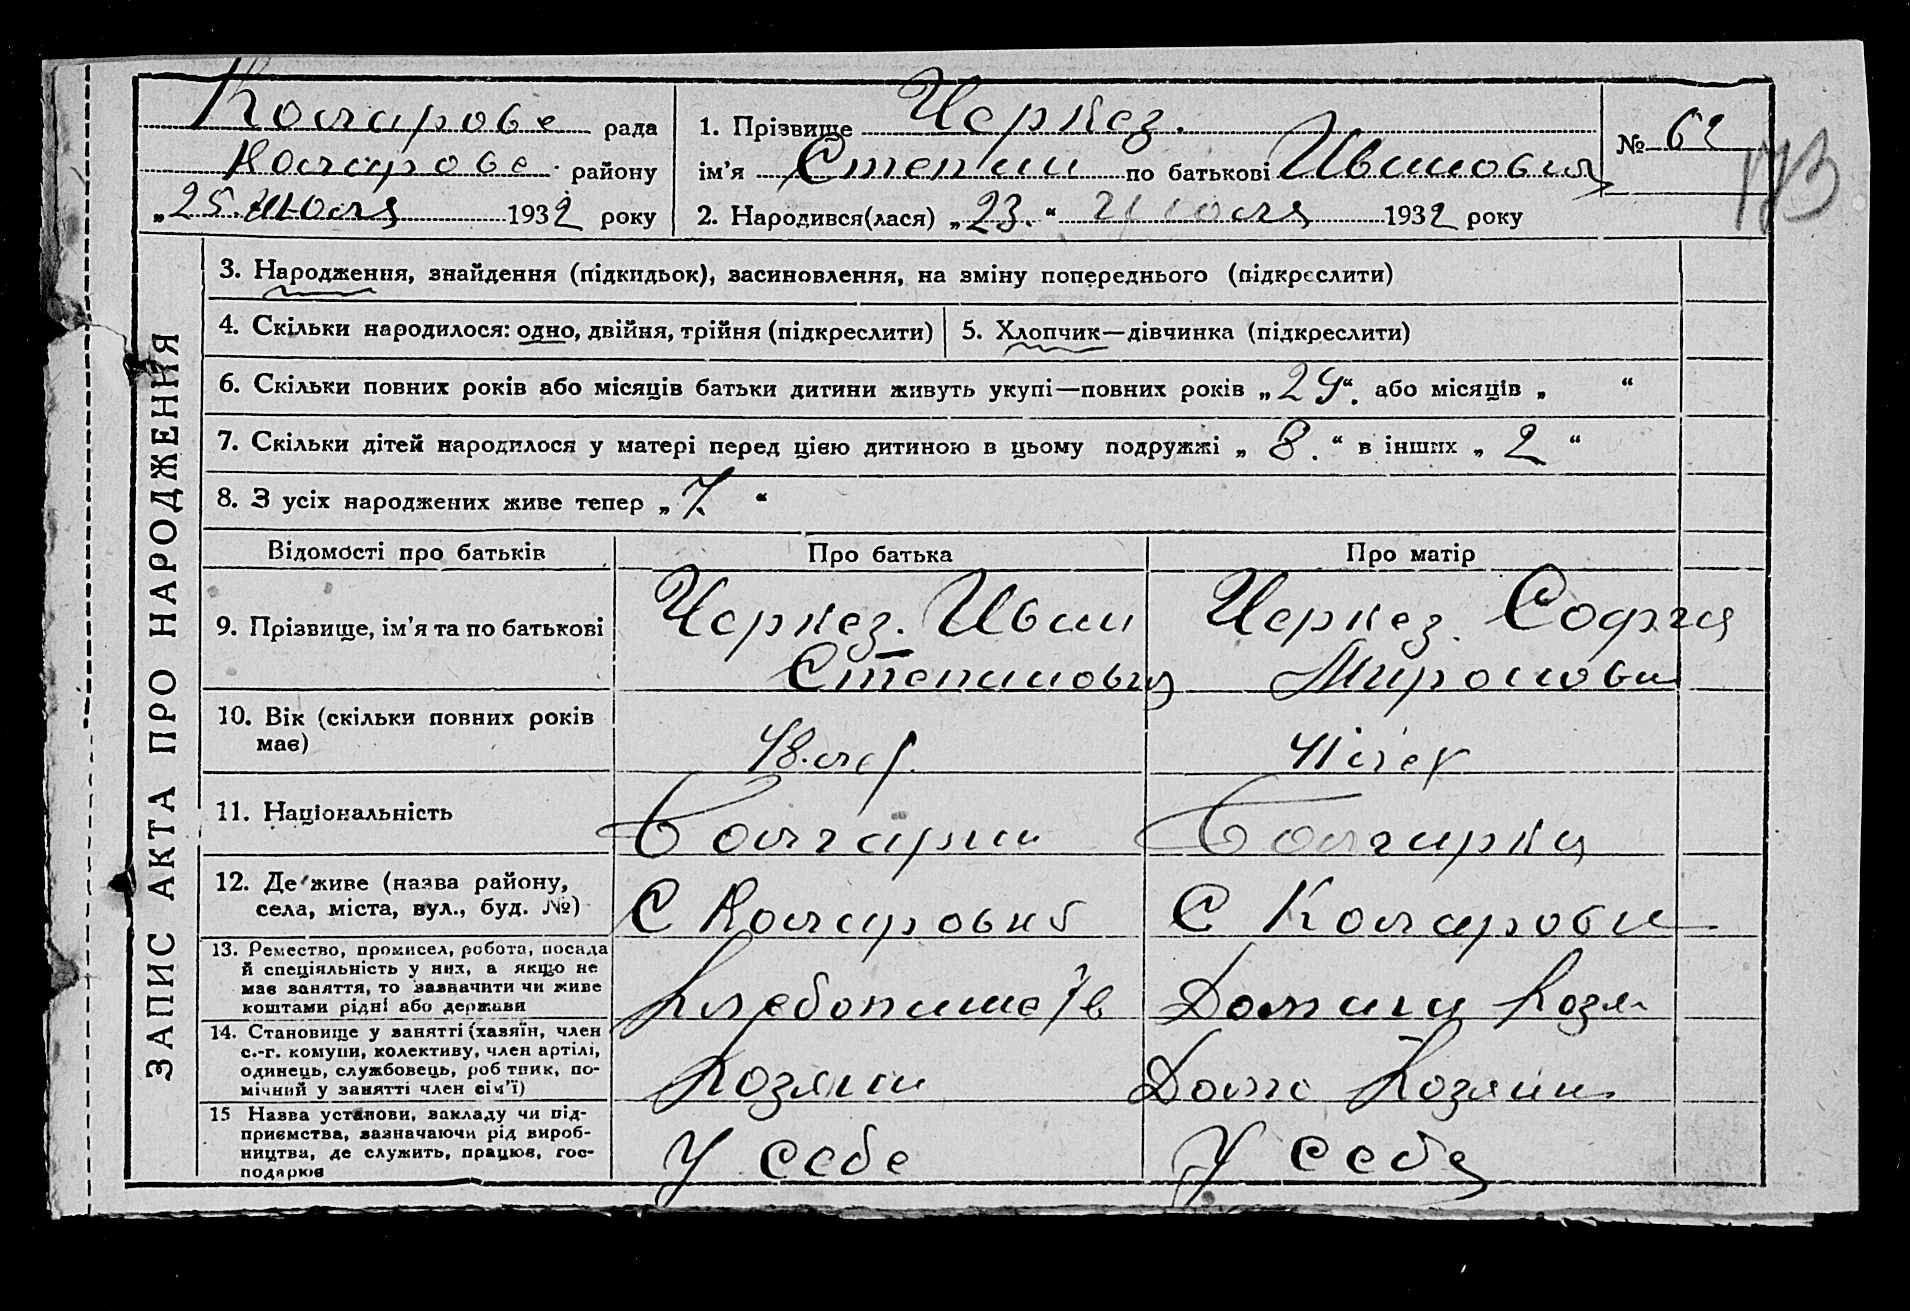 Коларове рада
Коларове району
„25. Июля 1932 року
1. Прізвище Черкез.
ім’я Степан по батькові Иванович
2. Народився(лася) „23.“ Июля 1932 року
№ 62
173
ЗАПИС АКТА ПРО НАРОДЖЕННЯ
3. Народження, знайдення (підкидьок), засиновлення, на зміну попереднього (підкреслити)
4. Скільки народилося: одно, двійня, трійня (підкреслити)
5. Хлопчик—дівчинка (підкреслити)
6. Скільки повних років або місяців батьки дитини живуть укупі—повних років „29“. або місяців „ “
7. Скільки дітей народилося у матері перед цією дитиною в цьому подружжі „ 8. “ в інших „ 2 “
8. З усіх народжених живе тепер „ 7. “
Відомості про батьків Про батька Про матір
9. Прізвище, ім’я та по батькові
Черкез. Иван
Степанович
Черкез. София
Мироновна
10. Вік (скільки повних років
має)
48. лет
41 лет
11. Національність
Болгарин
Болгарка
12. Де живе (назва району,
села, міста, вул., буд. №)
С Коларовка
С Коларовка
13. Ремество, промисел, робота, посада
й спеціяльність у них, а якщо не
має заняття, то зазначити чи живе
коштами рідні або держави
Хлебопашев
Домашн Хозя
14. Становище у занятті (хазяїн, член
с.-г. комуни, колективу, член артілі,
одинець, службовець, роб тник, по-
мічний у занятті член сім’ї)
Хозяин
Дома Хозяин
15 Назва установи, закладу чи під-
приємства, зазначаючи рід вироб-
ництва, де служить, працює, гос-
подарює
У себе
У себе